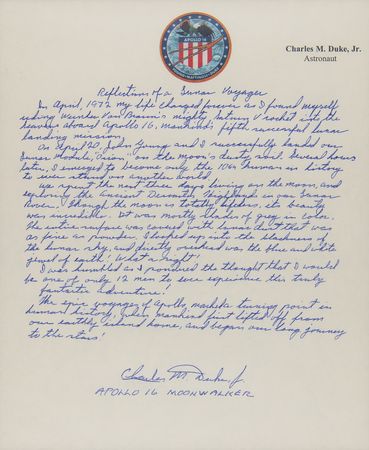 APOLLO 16
Charles M. Duke, Jr.
Astronaut
Reflections of a Lunar Voyager
In April, 1972 my life changed forever as I found myself
riding Wernher Von Braun's mighty Saturn V rocket into the
heavens aboard Apollo 16, mankind's fifth successful lunar
landing mission.
On April 20, John Young and I successfully landed our
Lunar Module, "Orion" on the moon's dusty soil. Several hours
later, I emerged to become only the 10th human in history
to ever stand on another world.
We spent the next three days living on the moon, and
exploring the ancient Descartes highlands in our Lunar
Rover. Though the moon is totally lifeless, its beauty
was incredible. It was mostly shades of grey in color.
The entire surface was covered with lunar dust that was
as fine as powder. I looked up into the blackness of
the lunar sky, and directly overhead was the blue and white
jewel of earth! What a sight!
I was humbled as I pondered the thought that I would
be one of only 12 men to ever experience this truly
fantastic adventure!
The epic voyages of Apollo, marked a turning point in
human history, when mankind first lifted off from
our earthly island home, and began our long journey
to the stars!
Charles M Duke Jr
APOLLO 16 MOONWALKER